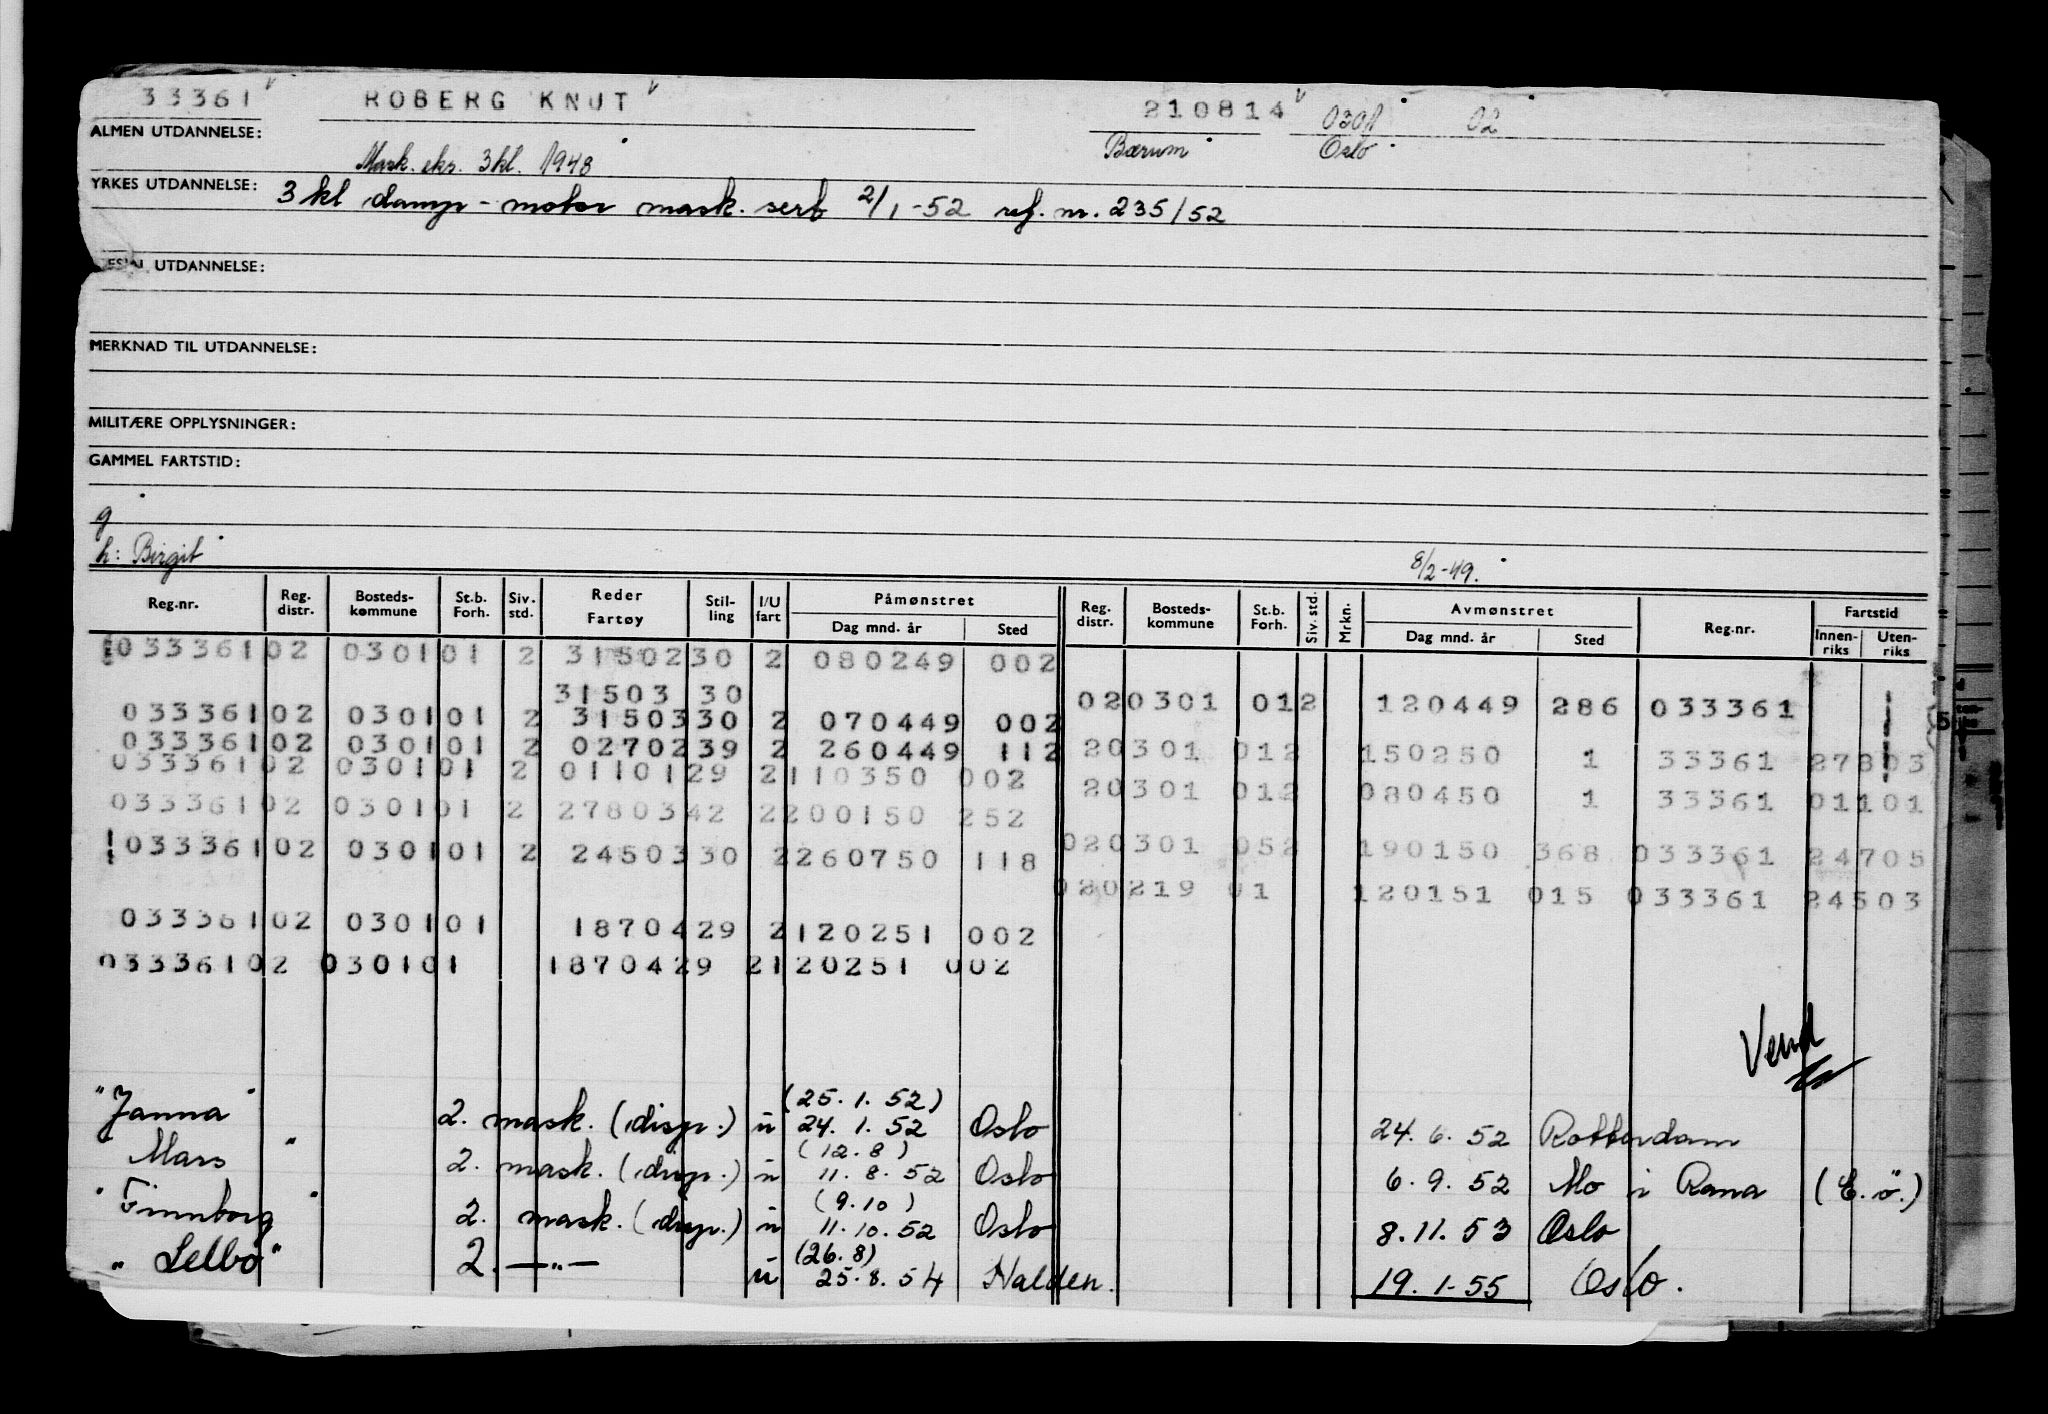 33361 ROBERG KNUT 210814 0301 02
ALMEN UTDANNELSE: Bærum Oslo
Mask. eks. 3kl. 1948
YRKES UTDANNELSE: 3 kl damp - motor mask. sert 2/1-52 ref. nr. 235/52
UTDANNELSE:
MERKNAD TIL UTDANNELSE:
MILITÆRE OPPLYSNINGER:
GAMMEL FARTSTID:
g
h: Birgit 8/2-49.
Reg.nr. Reg. distr. Bosteds-kommune St.b. Forh. Siv. std. Reder Fartøy Stil-ling I/U fart Påmønstret Dag mnd. år Sted Reg. distr. Bosteds-kommune St.b. Forh. Siv. std. Mrkn. Avmønstret Dag mnd. år Sted Reg.nr. Fartstid Innen-riks Uten-riks
033361 02 0301 01 2 31502 30 2 080249 002
31503 30 020301 012 120449 286 033361
033361 02 0301 01 2 31503 30 2 070449 002
033361 02 0301 01 2 02702 39 2 260449 112 20301 012 150250 1 33361 27803
033361 02 0301 01 2 01101 29 2 110350 002 20301 012 080450 1 33361 01101
033361 02 0301 01 2 27803 42 2 200150 252
033361 02 0301 01 2 24503 30 2 260750 118 020301 052 190150 368 033361 24705
020219 01 120151 015 033361 24503
033361 02 0301 01 18704 29 2 120251 002
033361 02 0301 01 18704 29 2 120251 002
Vend
"Janna" 2. mask. (disp.) u (25.1.52) 24.1.52 Oslo 24.6.52 Rotterdam
Mars " 2. mask. (disp.) u (12.8) 11.8.52 Oslo 6.9.52 Mo i Rana (E.ö.)
"Finnborg" 2. mask. (disp.) u (9.10) 11.10.52 Oslo 8.11.53 Oslo
"Selbo" 2. —"— u (26.8) 25.8.54 Halden. 19.1-55 Oslo.